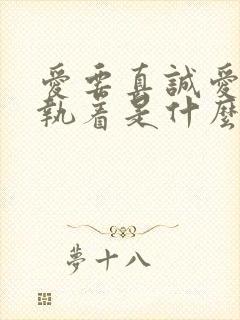 愛要真誠愛
執着是什麼
夢十八